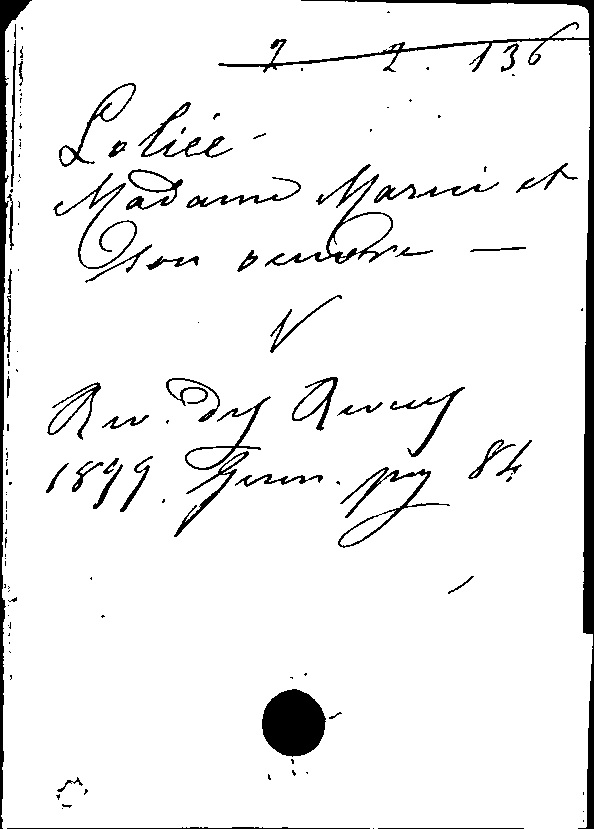 2. 2. 136
Loliée -
Madame Marni et
son oeuvre —
V
Rev. des Revues
1899. pag 84